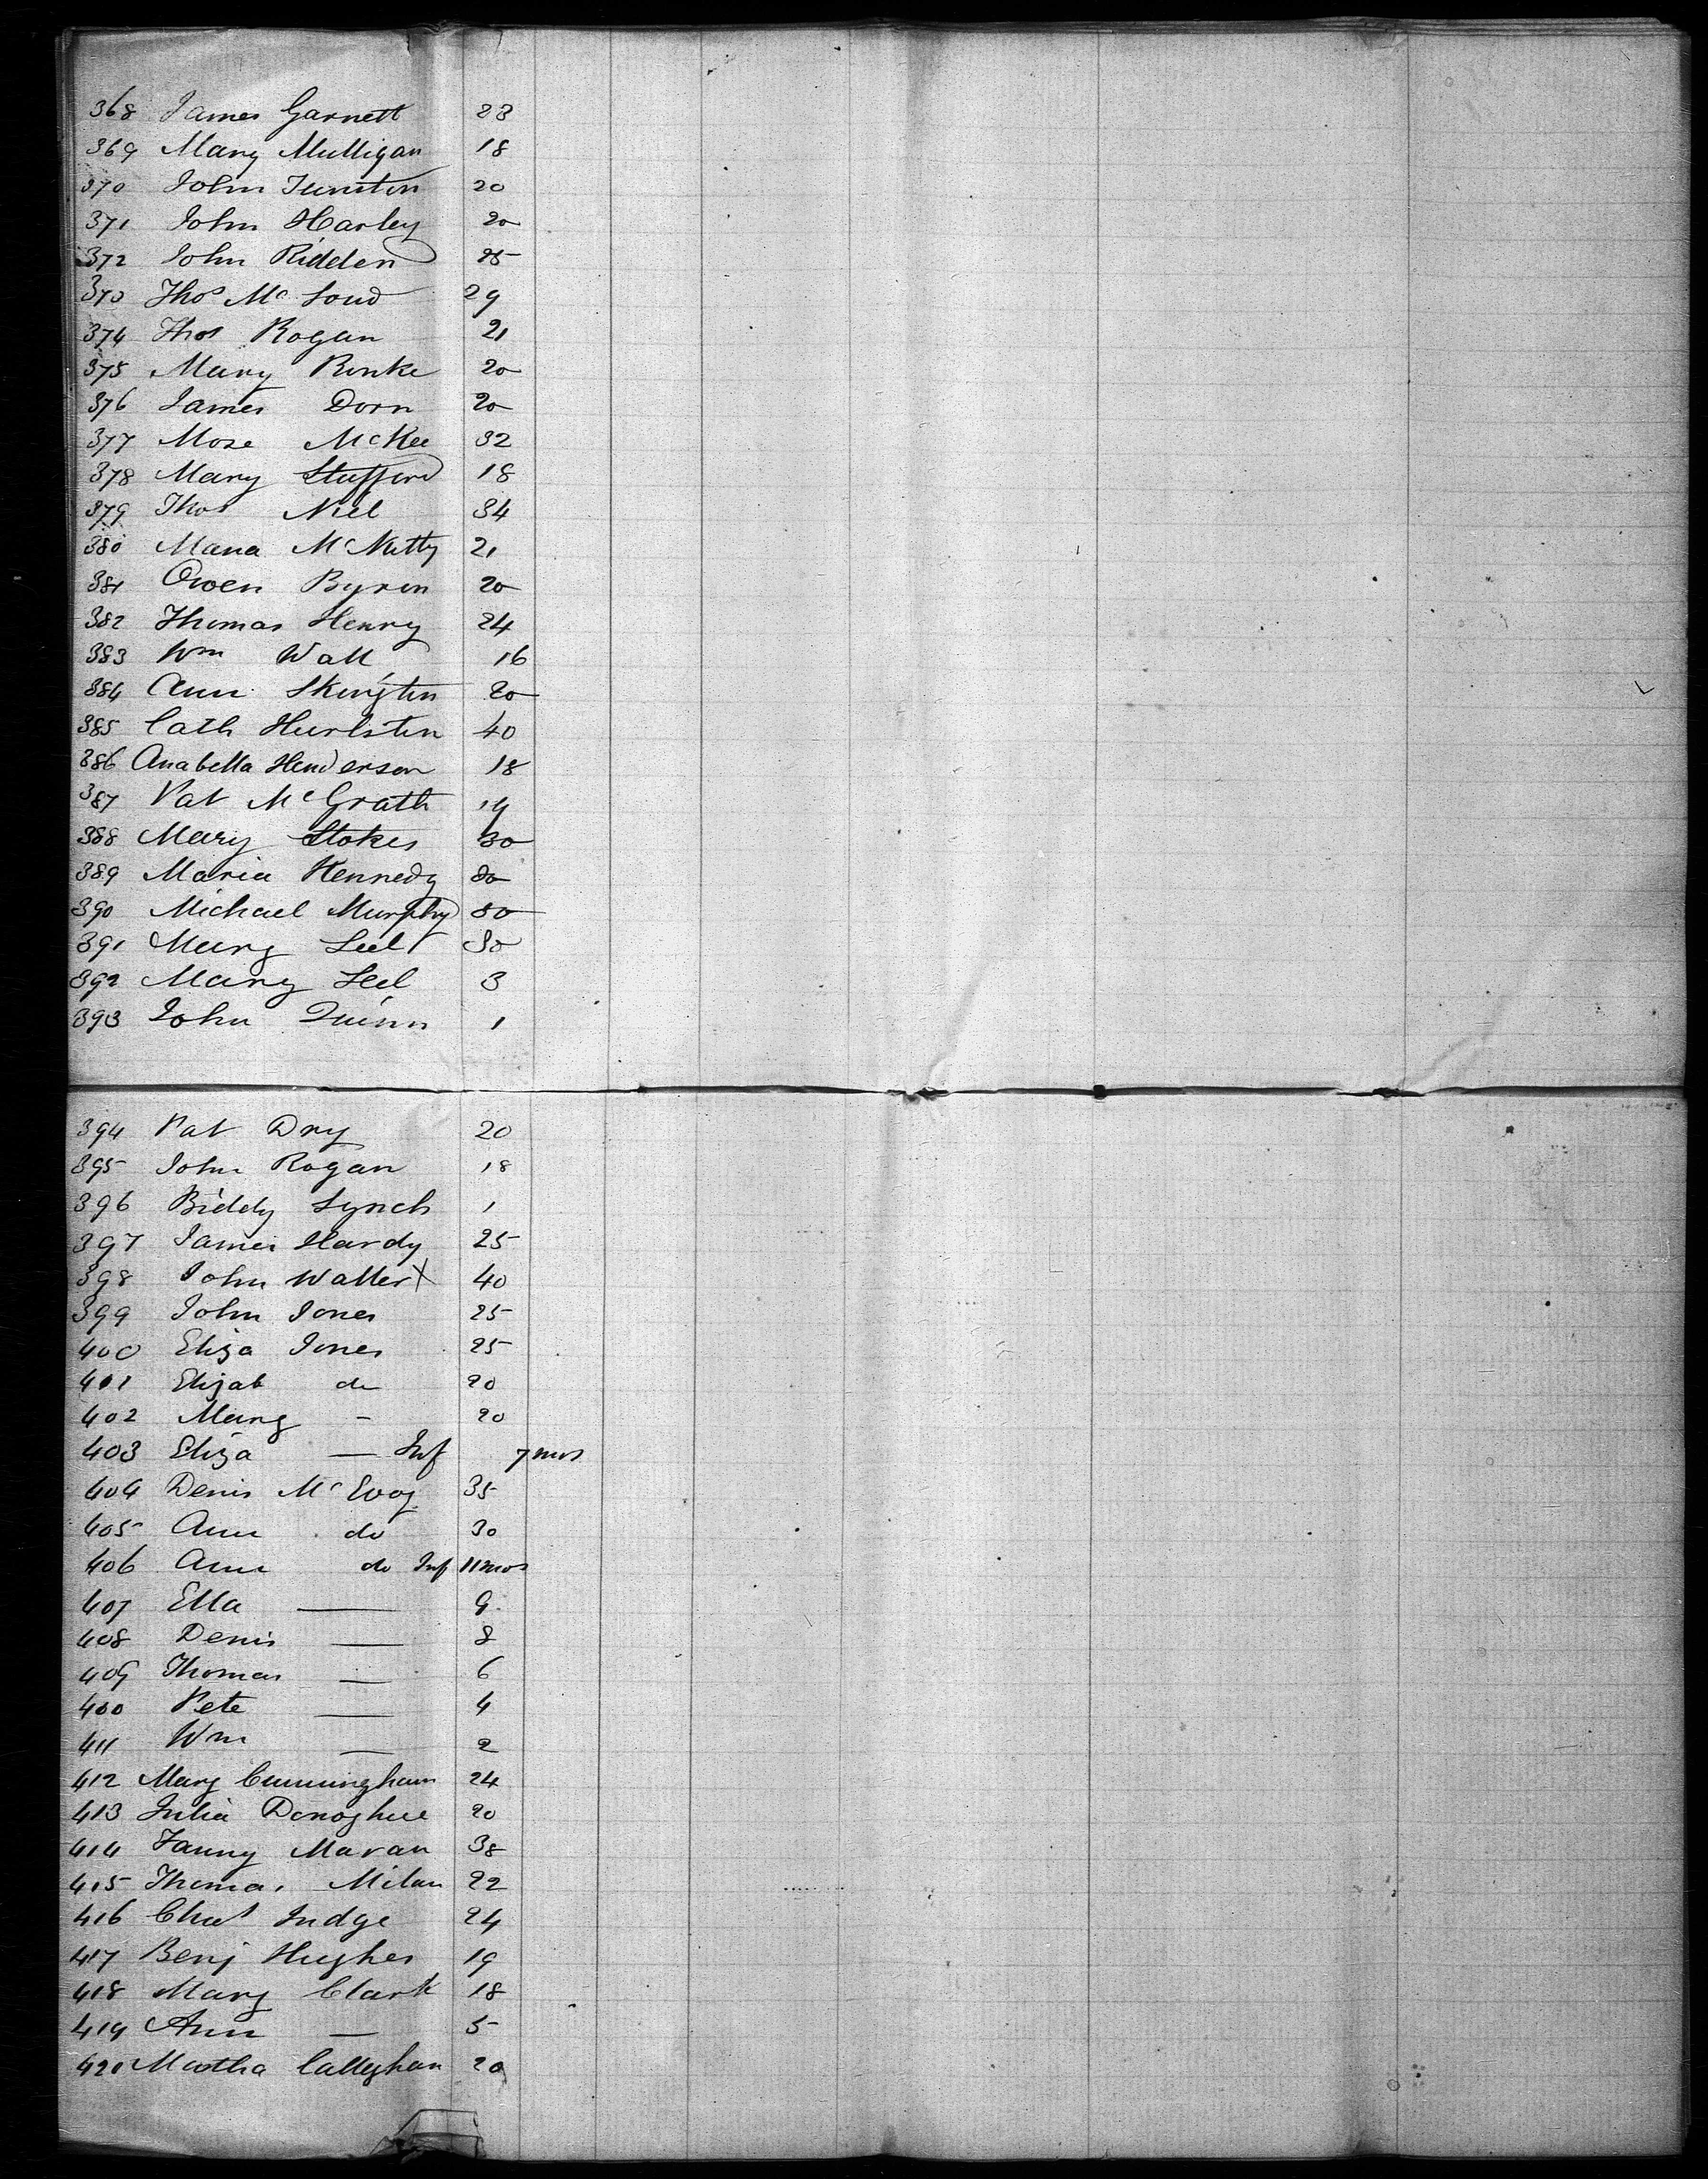 368 James Garnett 23
369 Mary Mulligan 18
370 John 20
371 John Harley 20
372 John Ridden 25
373 Thos Mc Loud 29
374 Thos Rogan 21
375 Mary 20
376 James Dorn 20
377 Mose McKee 32
378 Mary Stafford 18
379 Thos Niel 34
380 Maria McNutty 21
381 Owen Byron 20
382 Thomas Henry 24
383 Wm Wall 16
384 Ann 20
385 Cath Hurlston 40
386 Anabella Henderson 18
387 Pat McGrath 19
388 Mary Stokes 30
389 Maria Kennedy
390 Michael Murphy 30
391 Mary 30
392 Mary 3
393 John Quinn 1
394 Pat Dry 20
395 John Rogan 18
396 Biddy Lynch 1
397 James Hardy 25
398 John Walter X 40
399 John Jones 25
400 Eliza Jones 25
401 Elizab do 20
402 Marg - 20
403 Eliza — Inf 7 mos
404 Denis McEvoy 35
405 Ann do 30
406 Ann do Inf 11 mos
407 Ella — 9
408 Denis — 8
409 Thomas — 6
400 Pete — 4
411 Wm — 2
412 Marg Cunningham 24
413 Julia Donoghue 20
414 Fanny Maran 38
415 Thomas Milan 22
416 Chas Judge 24
417 Benj Hughes 19
418 Marg Clark 18
419 Ann — 5
420 Martha Calleghan 20